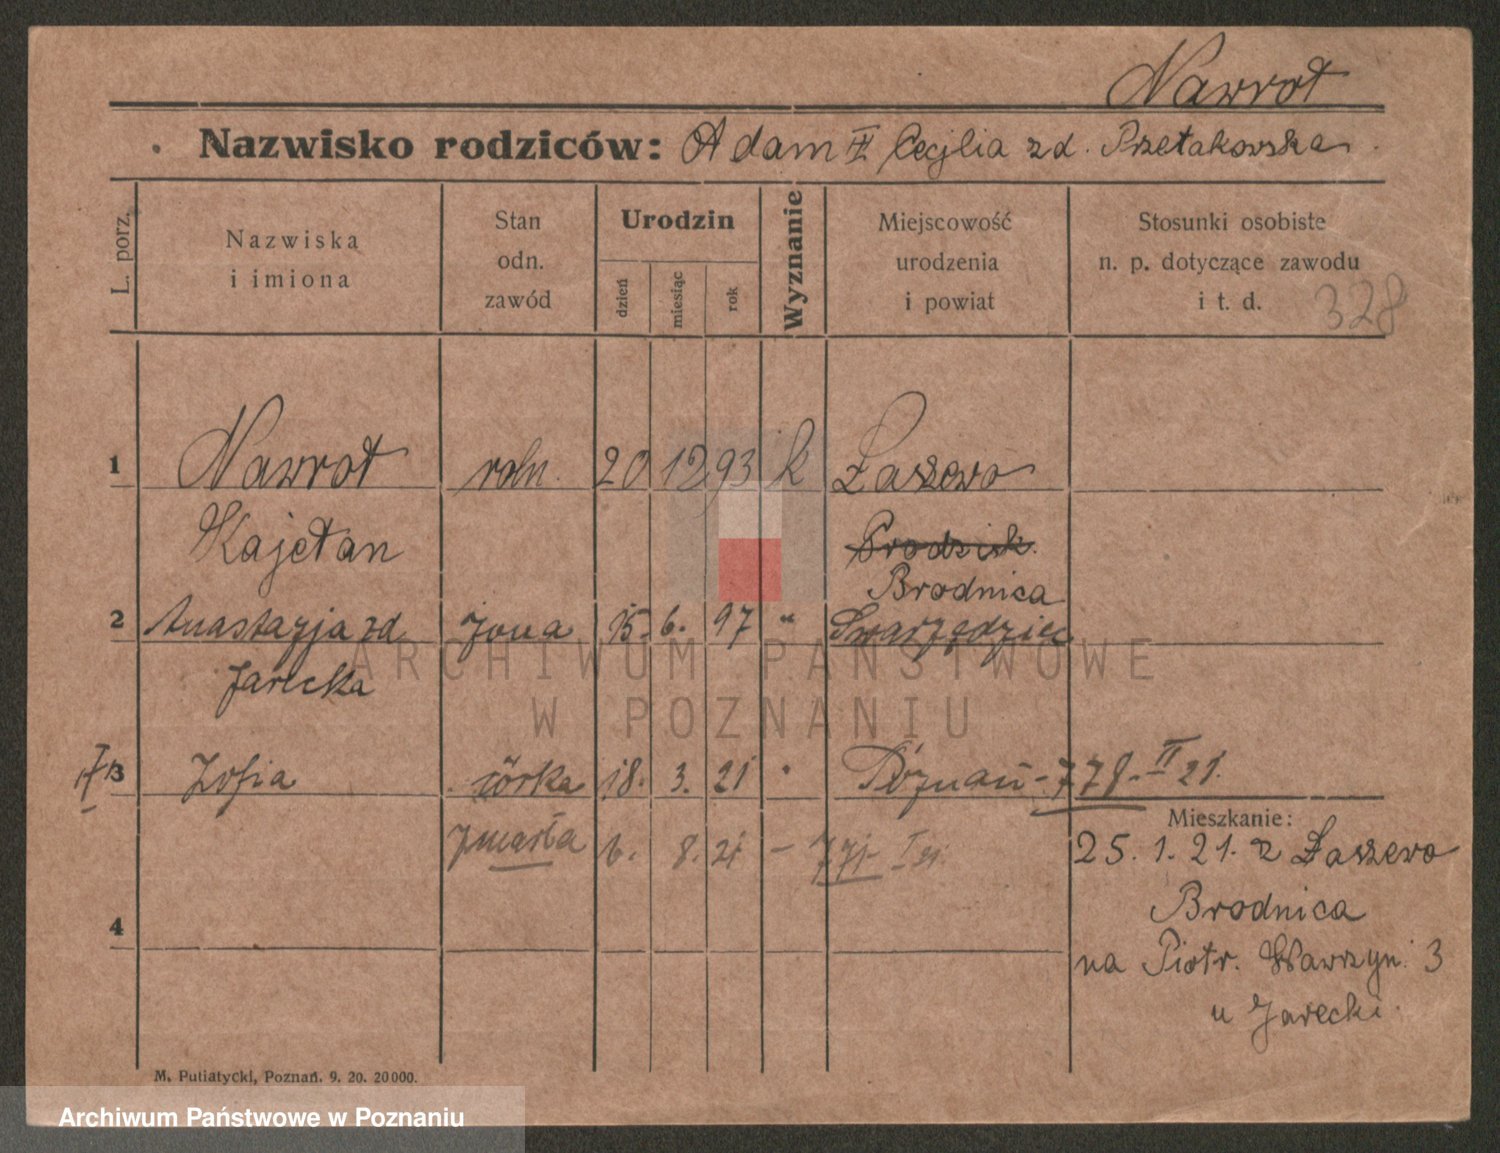 Nawrot
Nazwisko rodziców: Adam Cecylia zd. Przetakowska
L. porz.
Nazwiska
i imiona
Stan
odn.
zawód
Urodzin
dzień
miesiąc
rok
Wyznanie
Miejscowość
urodzenia
i powiat
Stosunki osobiste
n. p. dotyczące zawodu
i t. d.
328
1 Nawrot roln. 20 12 93 k Łaszewo
Kajetan
Brodnica
2 Anastazyja zd żona 15. 6. 97 " Swarzędziec
Jarecka
†3 Zofia córka 18. 3. 21 " Póznań - 778. II 21.
zmarła 6. 8. 21 - 771 I 21.
Mieszkanie:
25. 1. 21. z Łaszewo
Brodnica
na Piotr. Wawrzyn. 3
u Jarecki.
4
M. Putiatycki, Poznań. 9. 20. 20000.
ARCHIWUM PAŃSTWOWE
W POZNANIU
Archiwum Państwowe w Poznaniu